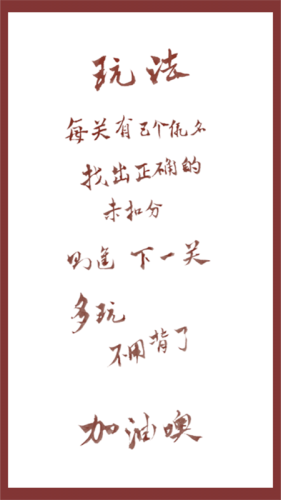 玩法
每关有五个侃名
找出正确的
未扣分
则进 下一关
多玩
不用背了
加油噢